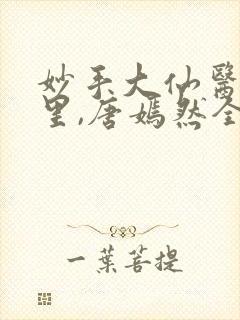 妙手大仙醫
里,唐嫣然全
一葉菩提